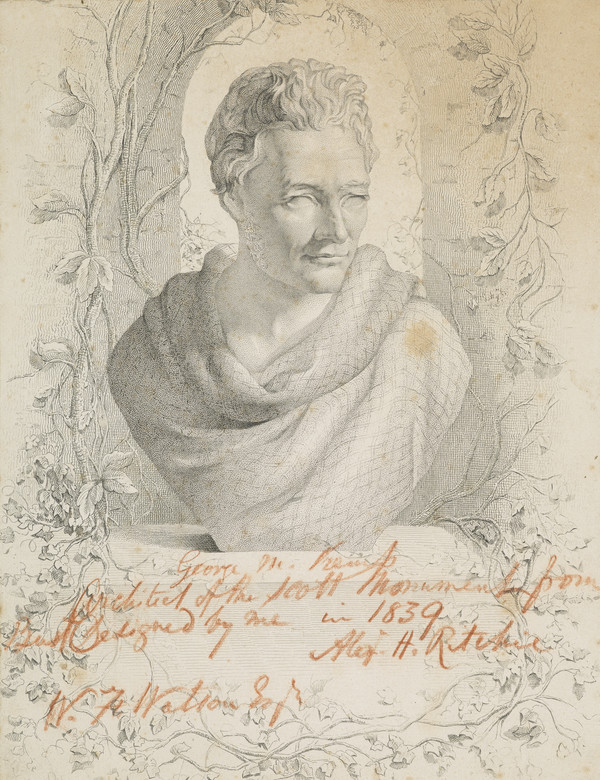 George M. Kemp.
Architect of the Scott Monument from
Bust Designed by me in 1839
Alexr. H. Ritchie
W. F. Watson Esqr